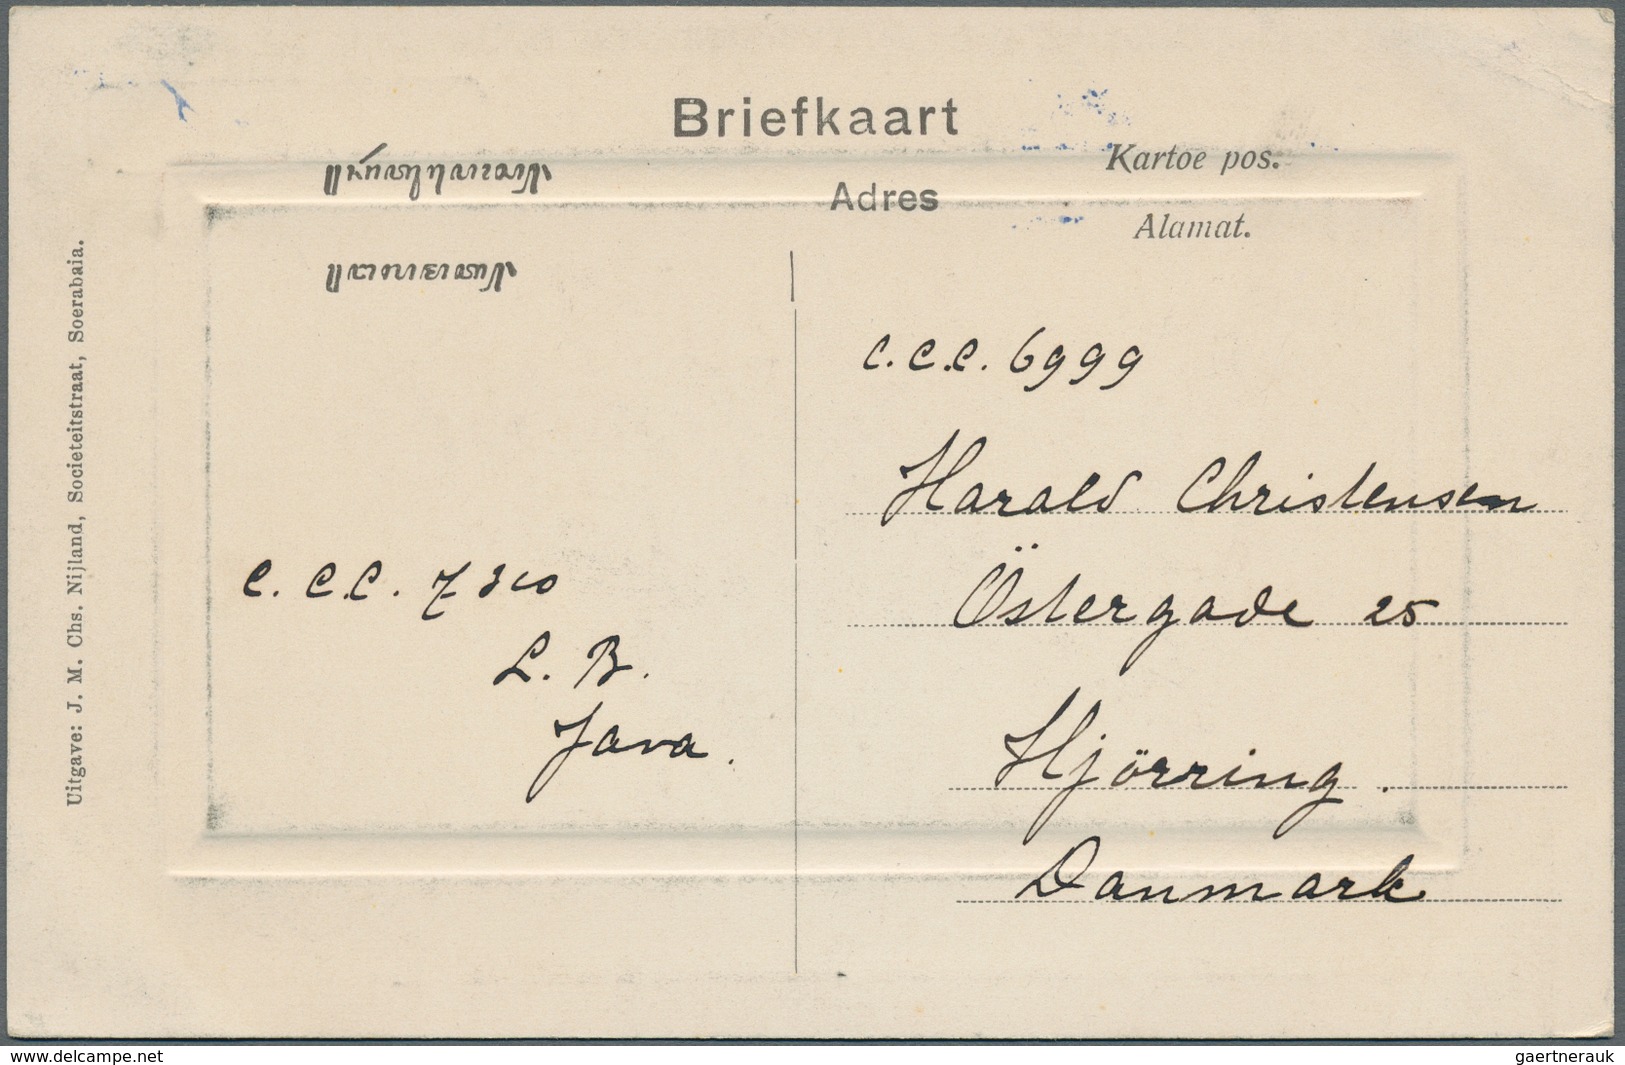 Briefkaart
Kartoe pos.
Adres
Alamat.
Uitgave: J. M. Chs. Nijland, Societeitstraat, Soerabaia.
C.C.C. 6999
Harald Christensen
Östergade 25
Hjörring.
Danmark
C.C.C. 7310
L. B.
Java.
www.delcampe.net
gaertnerauk